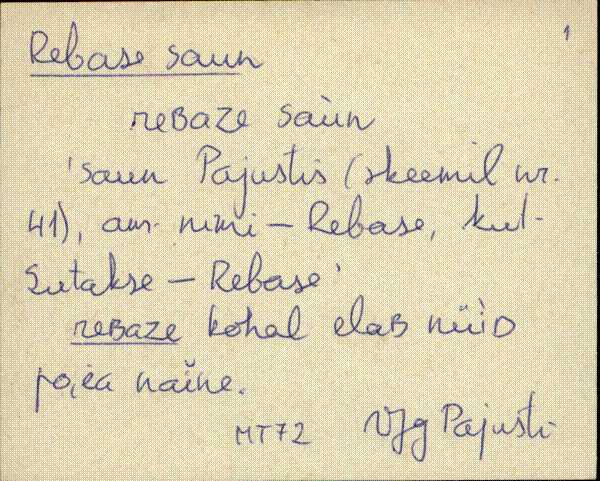 1
Rebase saun
reBaze saùn
'saun Pajustis (skeemil nr.
41), am. nimi – Rebase, kut-
sutakse – Rebase'
reBaze kohal elaB nüìD
naĭne.
MT72 VJg Pajusti